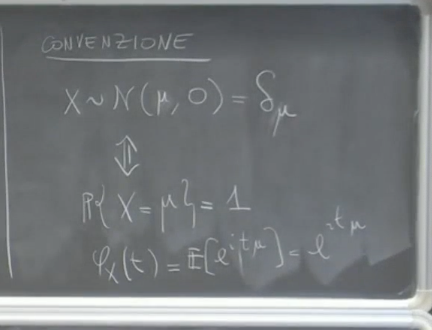 CONVENZIONE
X ~ N(μ, 0) = δ_μ
⇕
P{X = μ} = 1
φ_X(t) = 𝔼[e^{itμ}] = e^{itμ}